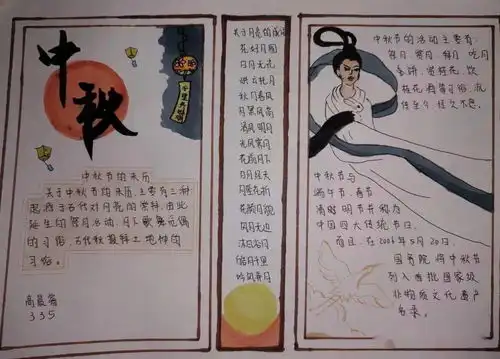 中秋
千里共婵娟
中秋节的来历
关于中秋节的来历,主要有三种
起源于古代对月亮的崇拜,由此
延生的赏月活动、月下歌舞觅偶
的习俗,古代秋报拜土地神的
习俗。
335
关于月亮的成语
花好月圆
日月无光
烘云托月
秋月春风
月黑风高
清风明月
光风霁月
花前月下
日月经天
花颜月貌
风月无边
沐日浴月
皓月千里
吟风弄月
中秋节的活动主要有:
祭月、赏月、拜月、吃月
饼、赏桂花、饮
桂花酒等习俗,流
传至今,经久不息。
中秋节与
端午节、春节
清明节并称为
中国四大传统节日。
而且,在2006年5月20日,
国务院将中秋节
列入首批国家级
非物质文化遗产
名录。